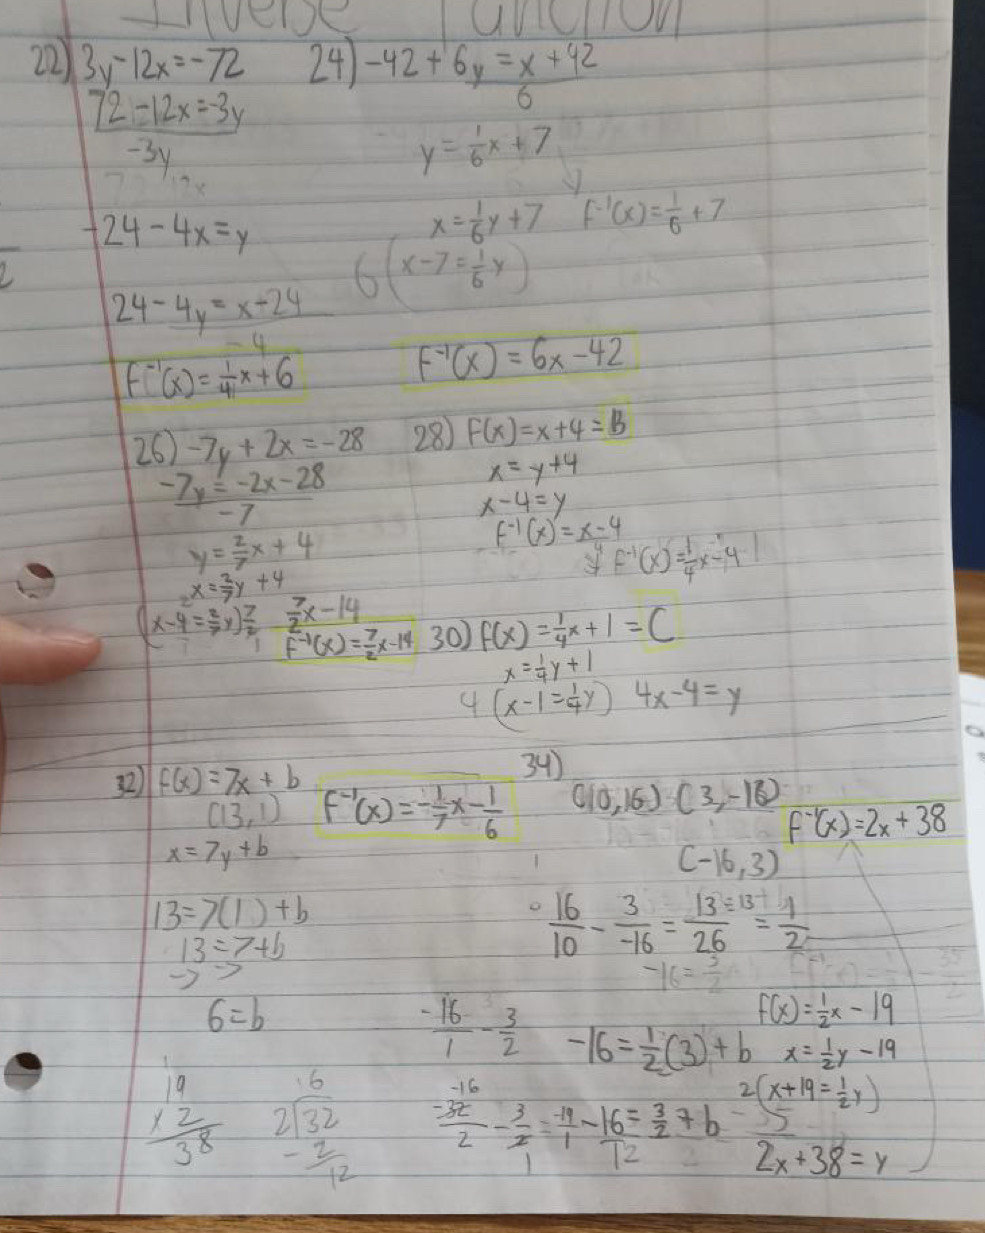 Inverse Function
22) 3y-12x=-72
72-12x=-3y
-3y
-24-4x=y
24-4y=x-24
-4
f⁻¹(x)=1/4x+6
24) -42+6y=x+42
6
y=1/6x+7
x=1/6y+7 f⁻¹(x)=1/6+7
6(x-7=1/6y)
f⁻¹(x)=6x-42
26) -7y+2x=-28
-7y=-2x-28
-7
y=2/7x+4
x=2/7y+4
(x-4=2/7y)7/2 7/2x-14
f⁻¹(x)=7/2x-14
28) f(x)=x+4=B
x=y+4
x-4=y
f⁻¹(x)=x-4
f⁻¹(x)=1/4x-4
30) f(x)=1/4x+1=C
x=1/4y+1
4(x-1=1/4y) 4x-4=y
32) f(x)=7x+b
(13,1)
x=7y+b
f⁻¹(x)=-1/7x-1/6
13=7(1)+b
13=7+b
6=b
19
×2
38
16
2)32
-2
12
34)
(10,16) (3,-16)
f⁻¹(x)=2x+38
(-16,3)
16/10 - 3/-16 = 13/26 = 1/2
f(x)=1/2x-19
-16/1 - 3/2 -16=1/2(3)+b x=1/2y-19
2(x+19=1/2y)
-32/2 - 3/2 = -19/1 -16=3/2+b
2x+38=y